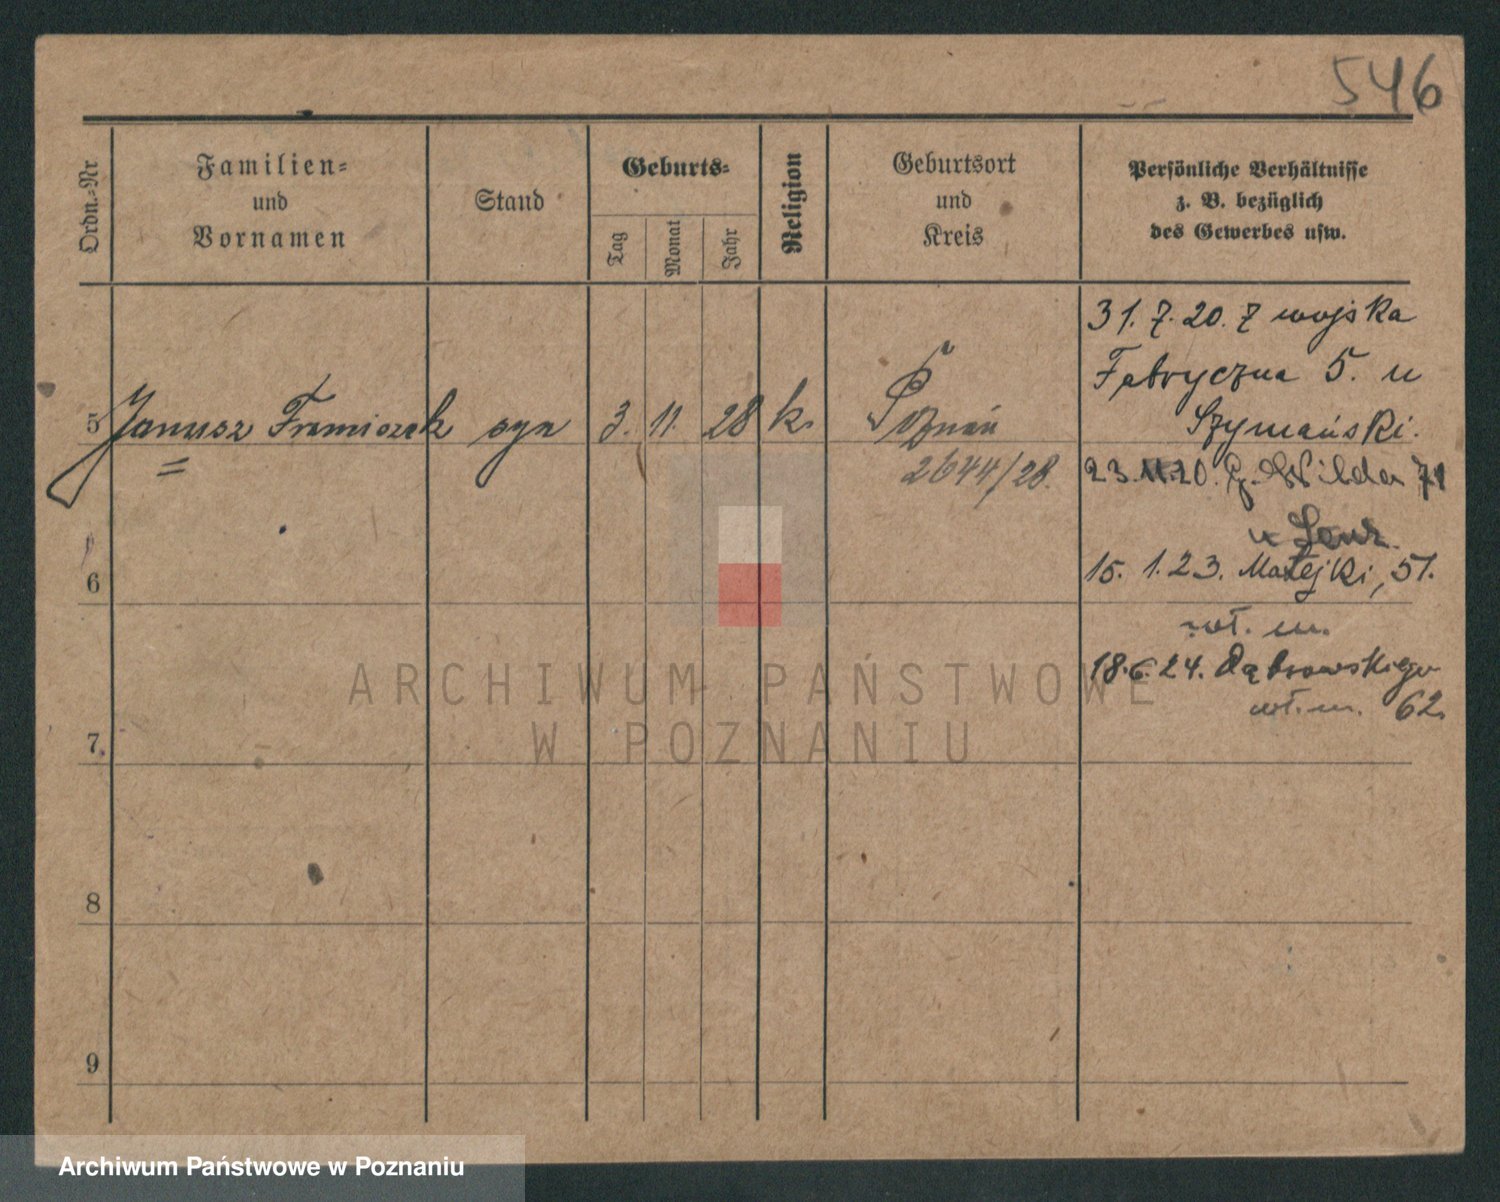 546
Ordn.-Nr
Familien-
und
Vornamen
Stand
Geburts-
Tag
Monat
Jahr
Religion
Geburtsort
und
Kreis
Persönliche Verhältnisse
z. B. bezüglich
des Gewerbes usw.
31. 7. 20. z wojska
Fabryczna 5. u
Szymański.
5 Janusz Franciszek syn 3. 11. 28 k. Poznań
2644/28.
23. 11. 20. G. Wilda 71
u
15. 1. 23. Matejki, 51.
wł. m.
18. 6. 24. Dąbrowskiego
wł. m. 62.
6
7
8
9
ARCHIWUM PAŃSTWOWE
W POZNANIU
Archiwum Państwowe w Poznaniu